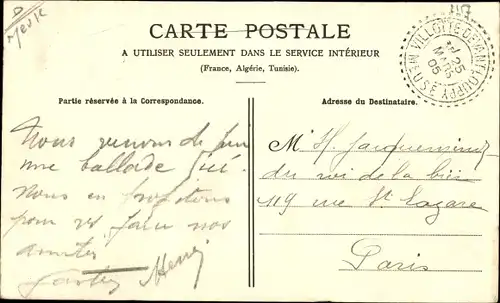 CARTE POSTALE
A UTILISER SEULEMENT DANS LE SERVICE INTÉRIEUR
(France, Algérie, Tunisie).
VILLOTTE DEVANT LOUPPY
25
MARS
05
MEUSE
Partie réservée à la Correspondance.
Nous venons de
une ballade ici.
Nous en profitons
pour vs faire nos
amitiés
Henri
Adresse du Destinataire.
M. H.
du roi de la
119 rue St Lazare
Paris